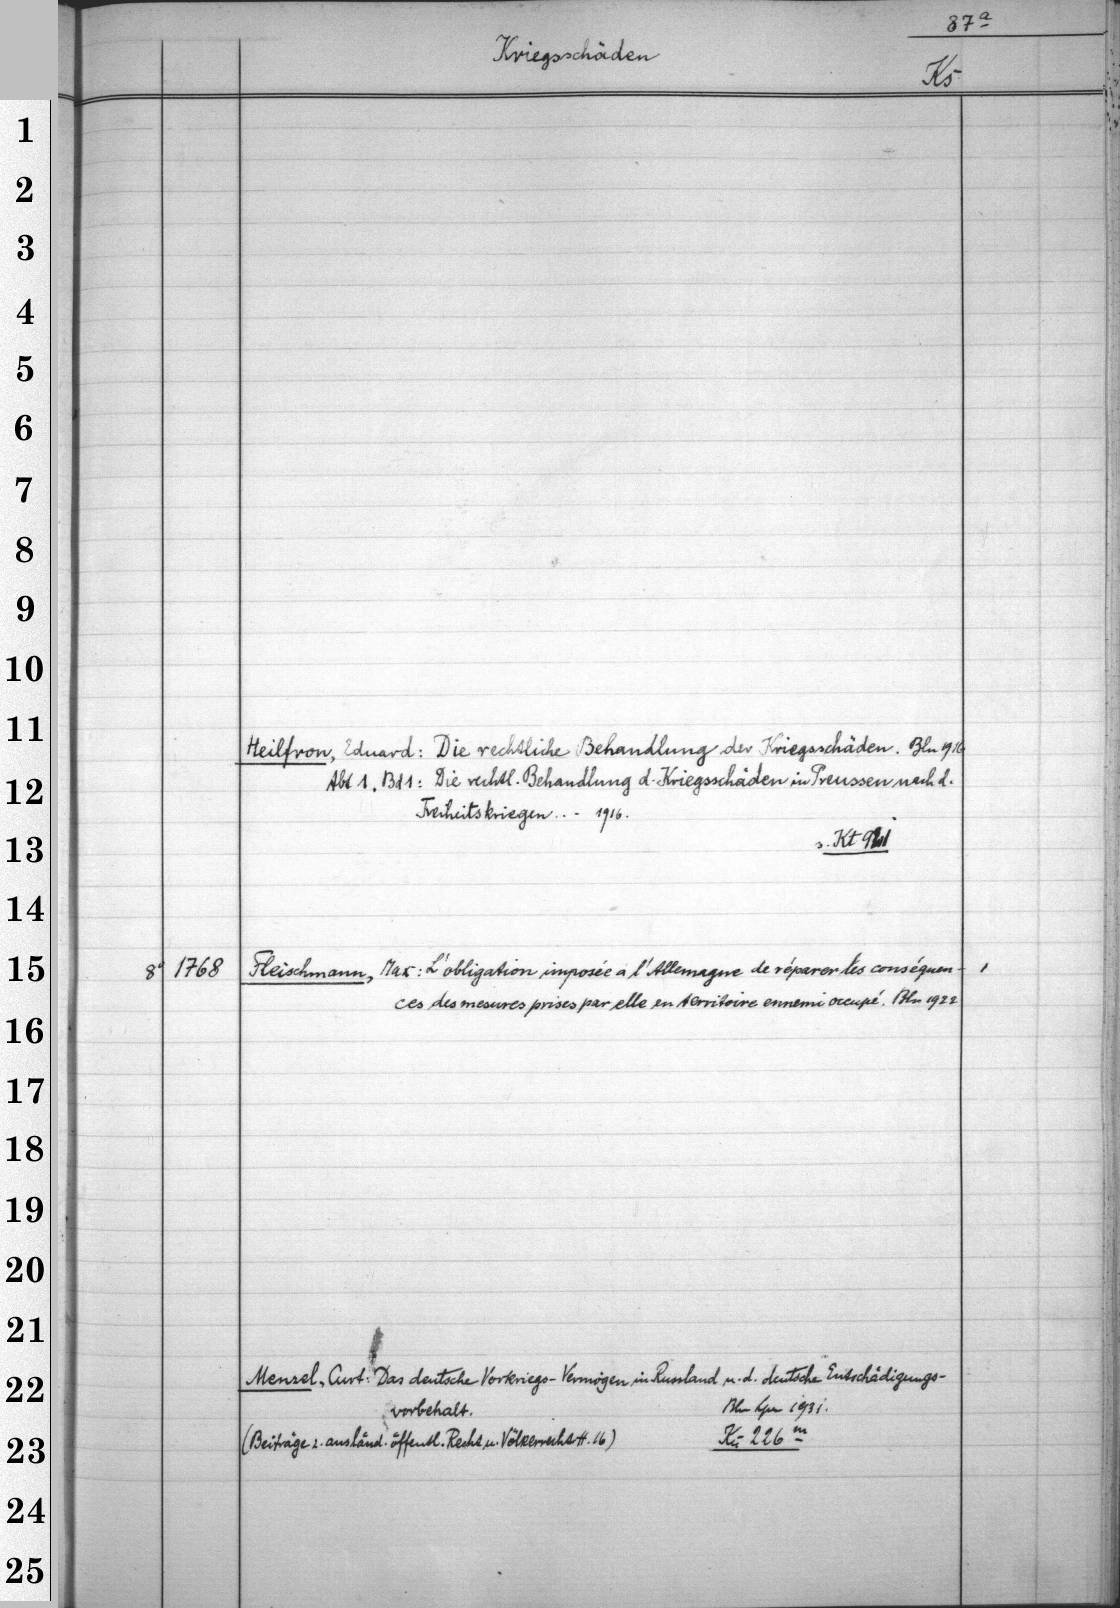 87ª
Kriegsschäden
Ks
1
2
3
4
5
6
7
8
9
10
11
Heilfron, Eduard: Die rechtliche Behandlung der Kriegsschäden. Bln 1916
12
Abt 1, Bd 1: Die rechtl. Behandlung d. Kriegsschäden in Preussen nach d.
Freiheitskriegen... 1916.
13
s. Kt
14
15
8° 1768 Fleischmann, Max: L'obligation imposée a l'Allemagne de réparer les conséquen- 1
ces des mesures prises par elle en territoire ennemi occupé. Bln 1922
16
17
18
19
20
21
22
Menzel, Curt: Das deutsche Vorkriegs-Vermögen in Russland u. d. deutsche Entschädigungs-
vorbehalt. Bln Lpz 1931.
23
(Beiträge z. ausländ. öffentl. Recht u. Völkerrecht H. 16) Kü 226 m
24
25